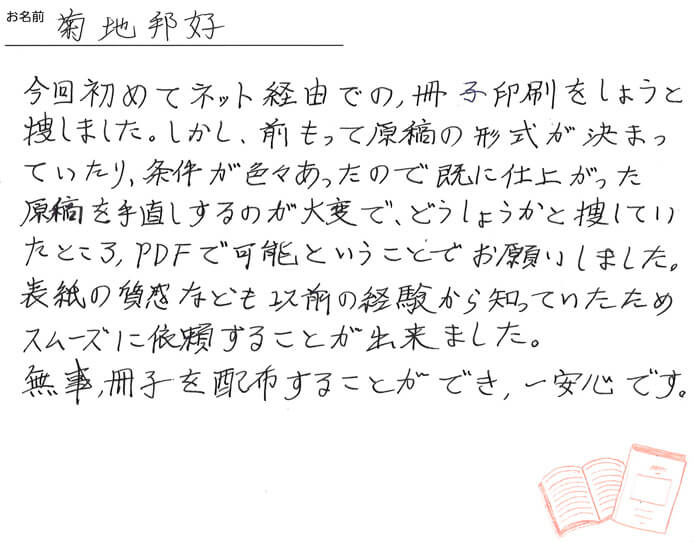 お名前 菊地邦好
今回初めてネット経由での,冊子印刷をしようと
捜しました。しかし、前もって原稿の形式が決まっ
ていたり、条件が色々あったので既に仕上がった
原稿を手直しするのが大変で、どうしょうかと捜してい
たところ,PDFで可能ということでお願いしました。
表紙の質感なども以前の経験から知っていたため
スムーズに依頼することが出来ました。
無事,冊子を配布することができ,一安心です。